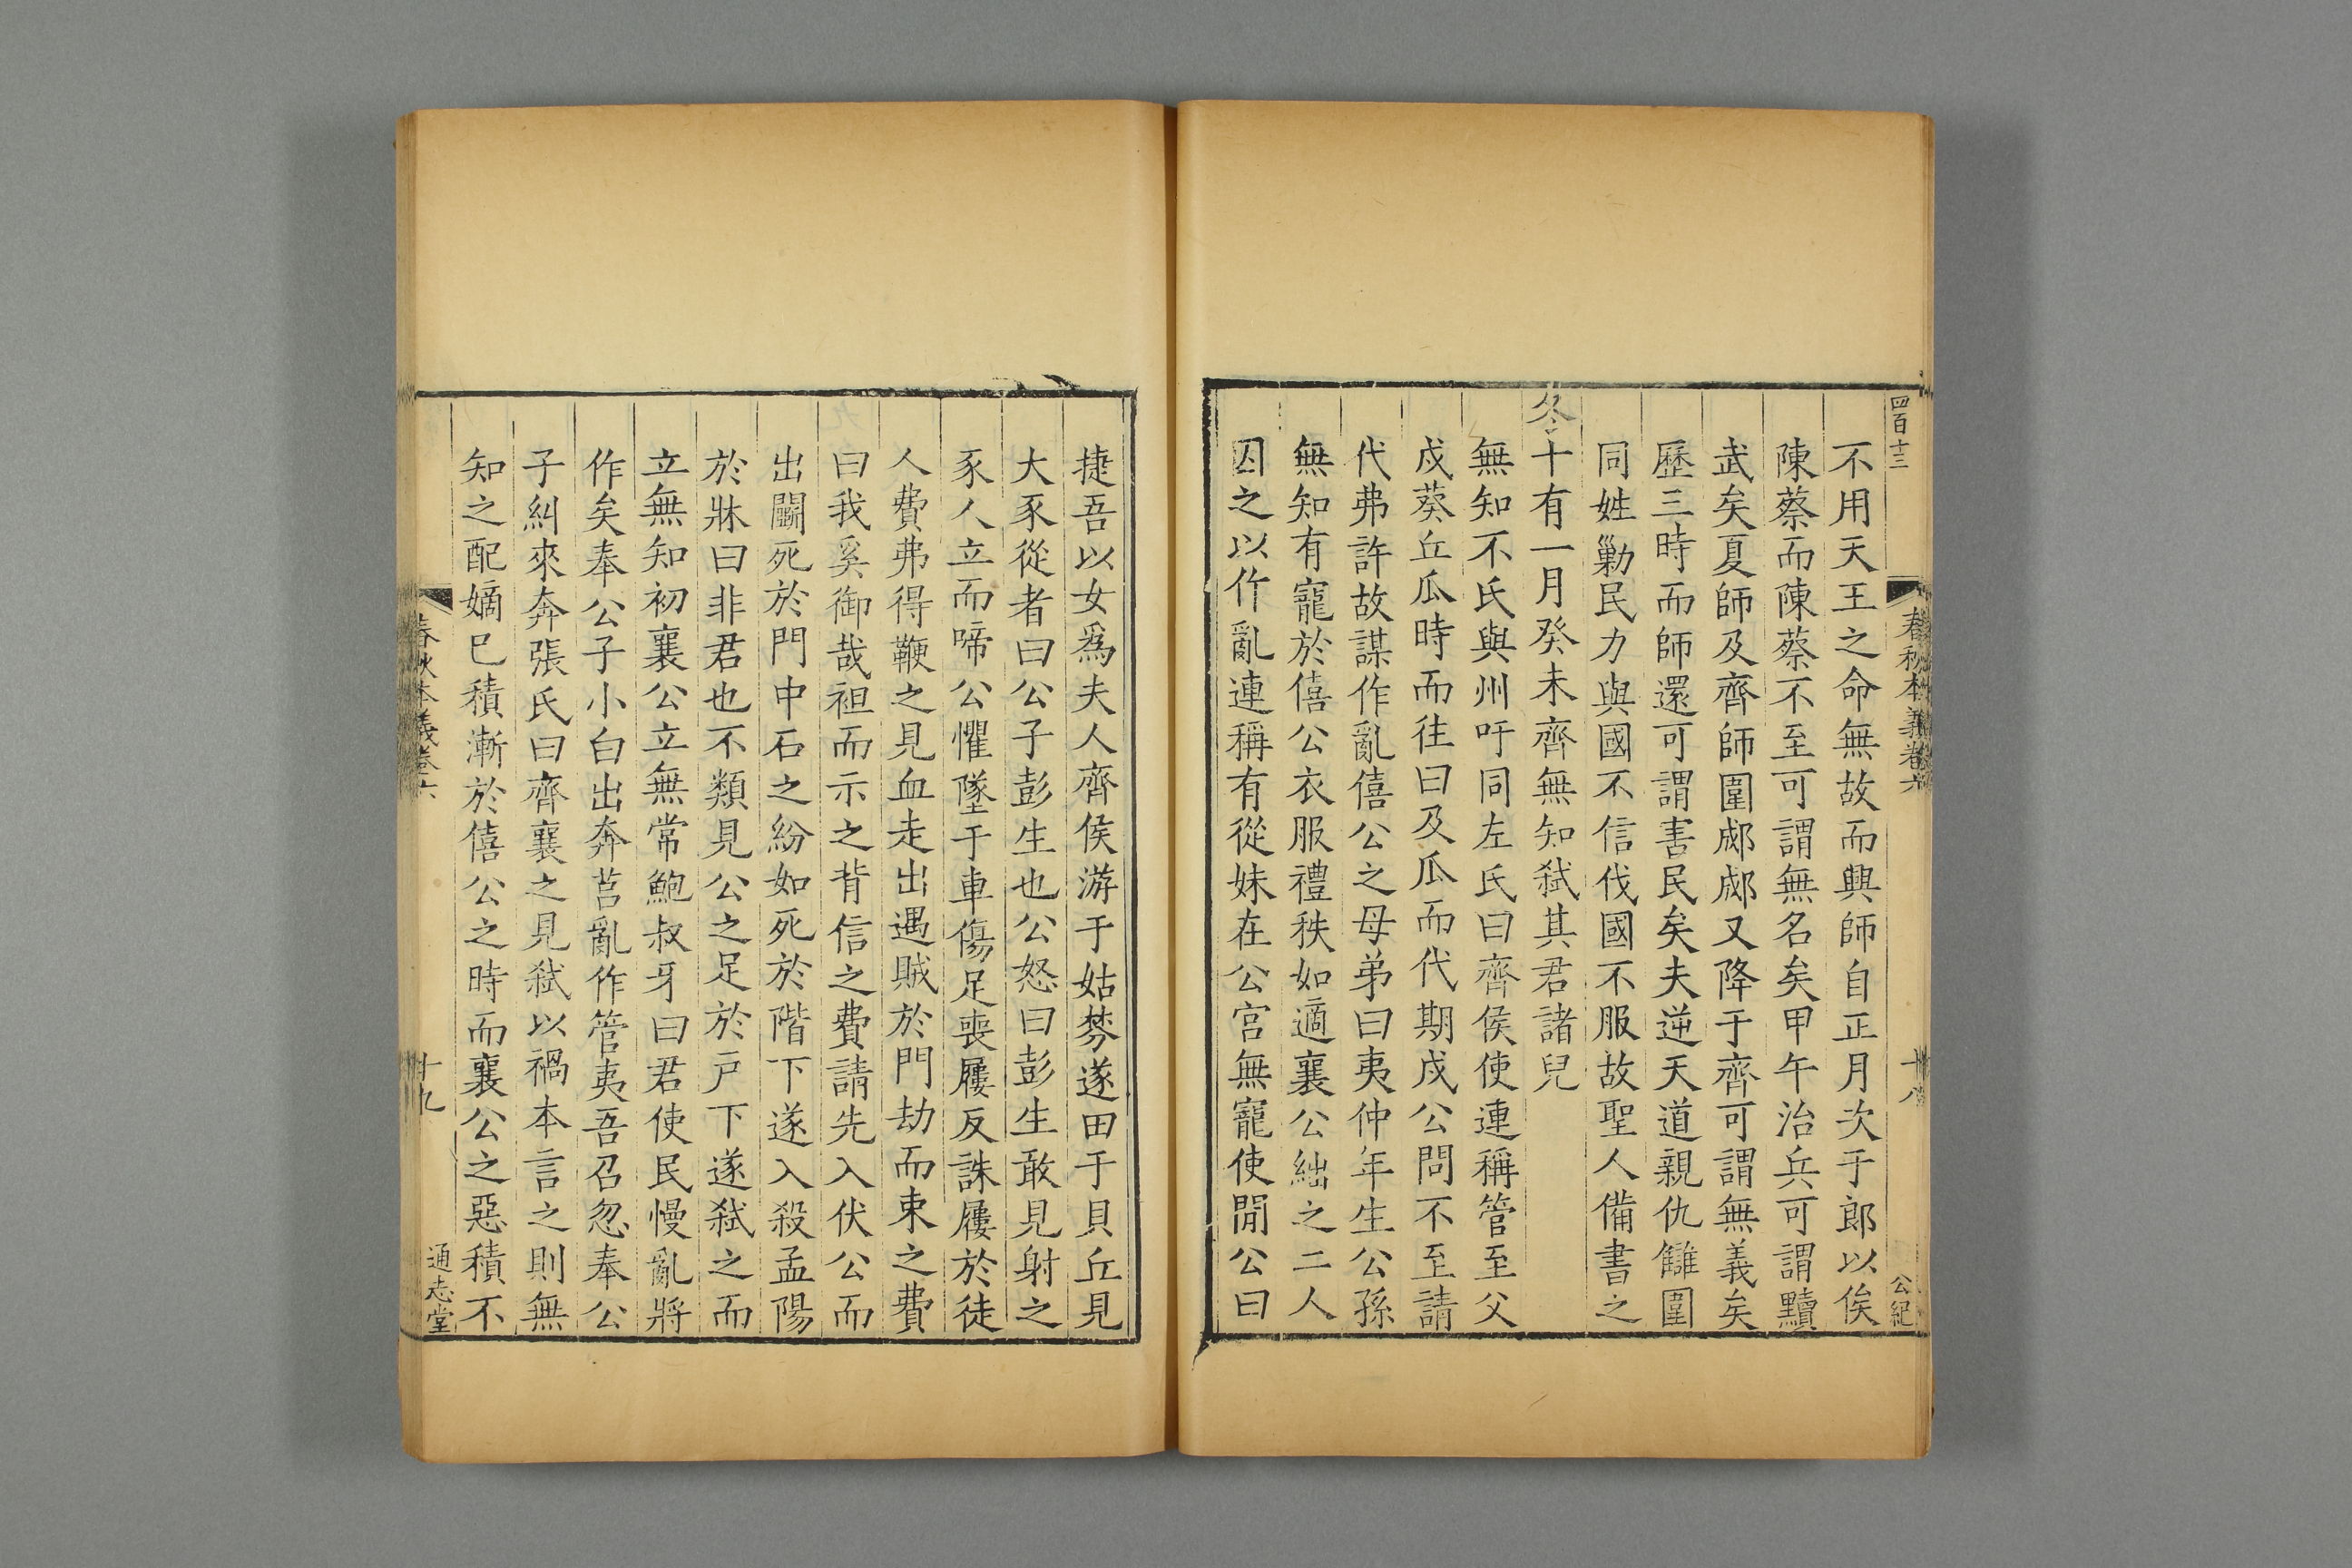 四百十三
春秋本義卷六
十八
公紀
不用天王之命無故而興師自正月次于郎以俟
陳蔡而陳蔡不至可謂無名矣甲午治兵可謂黷
武矣夏師及齊師圍郕郕又降于齊可謂無義矣
歷三時而師還可謂害民矣夫逆天道親仇讎圍
同姓勦民力與國不信伐國不服故聖人備書之
冬十有一月癸未齊無知弒其君諸兒
無知不氏與州吁同左氏曰齊侯使連稱管至父
戍葵丘瓜時而往曰及瓜而代期戍公問不至請
代弗許故謀作亂僖公之母弟曰夷仲年生公孫
無知有寵於僖公衣服禮秩如適襄公絀之二人
因之以作亂連稱有從妹在公宮無寵使間公曰
捷吾以女爲夫人齊侯游于姑棼遂田于貝丘見
大豕從者曰公子彭生也公怒曰彭生敢見射之
豕人立而啼公懼墜于車傷足喪屨反誅屨於徒
人費弗得鞭之見血走出遇賊於門劫而束之費
曰我奚御哉袒而示之背信之費請先入伏公而
出鬭死於門中石之紛如死於階下遂入殺孟陽
於牀曰非君也不類見公之足於戶下遂弒之而
立無知初襄公立無常鮑叔牙曰君使民慢亂將
作矣奉公子小白出奔莒亂作管夷吾召忽奉公
子糾來奔張氏曰齊襄之見弒以禍本言之則無
知之配嫡已積漸於僖公之時而襄公之惡積不
春秋本義卷六
十九
通志堂